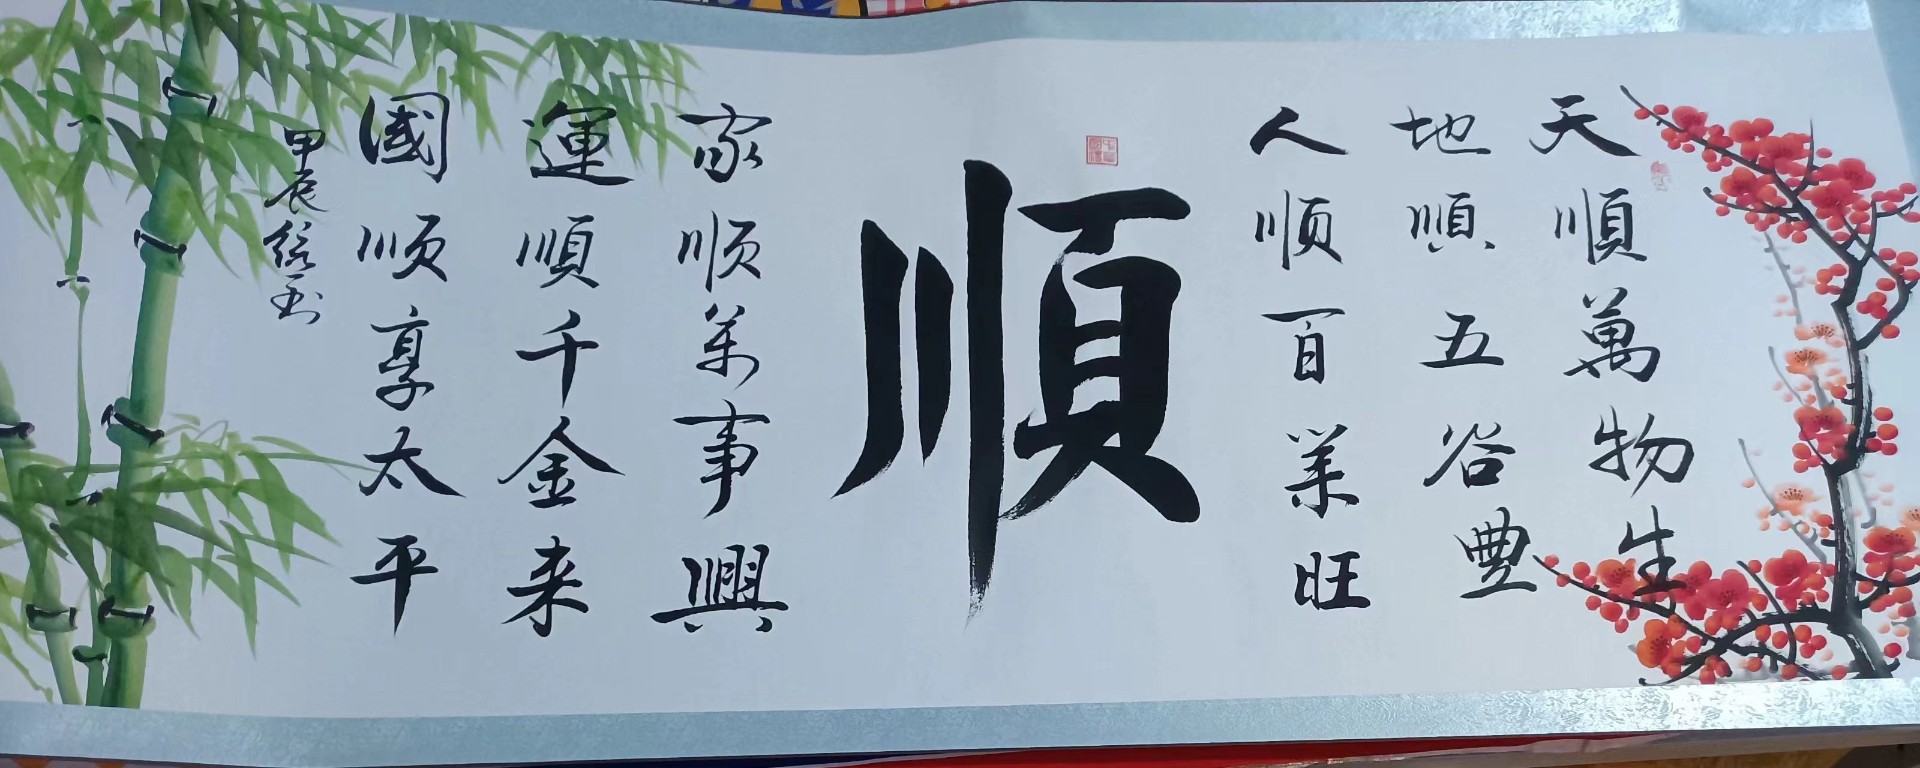 天順萬物生
地順五谷豊
人顺百業旺
順
家顺萬事興
運順千金来
國顺享太平
甲辰